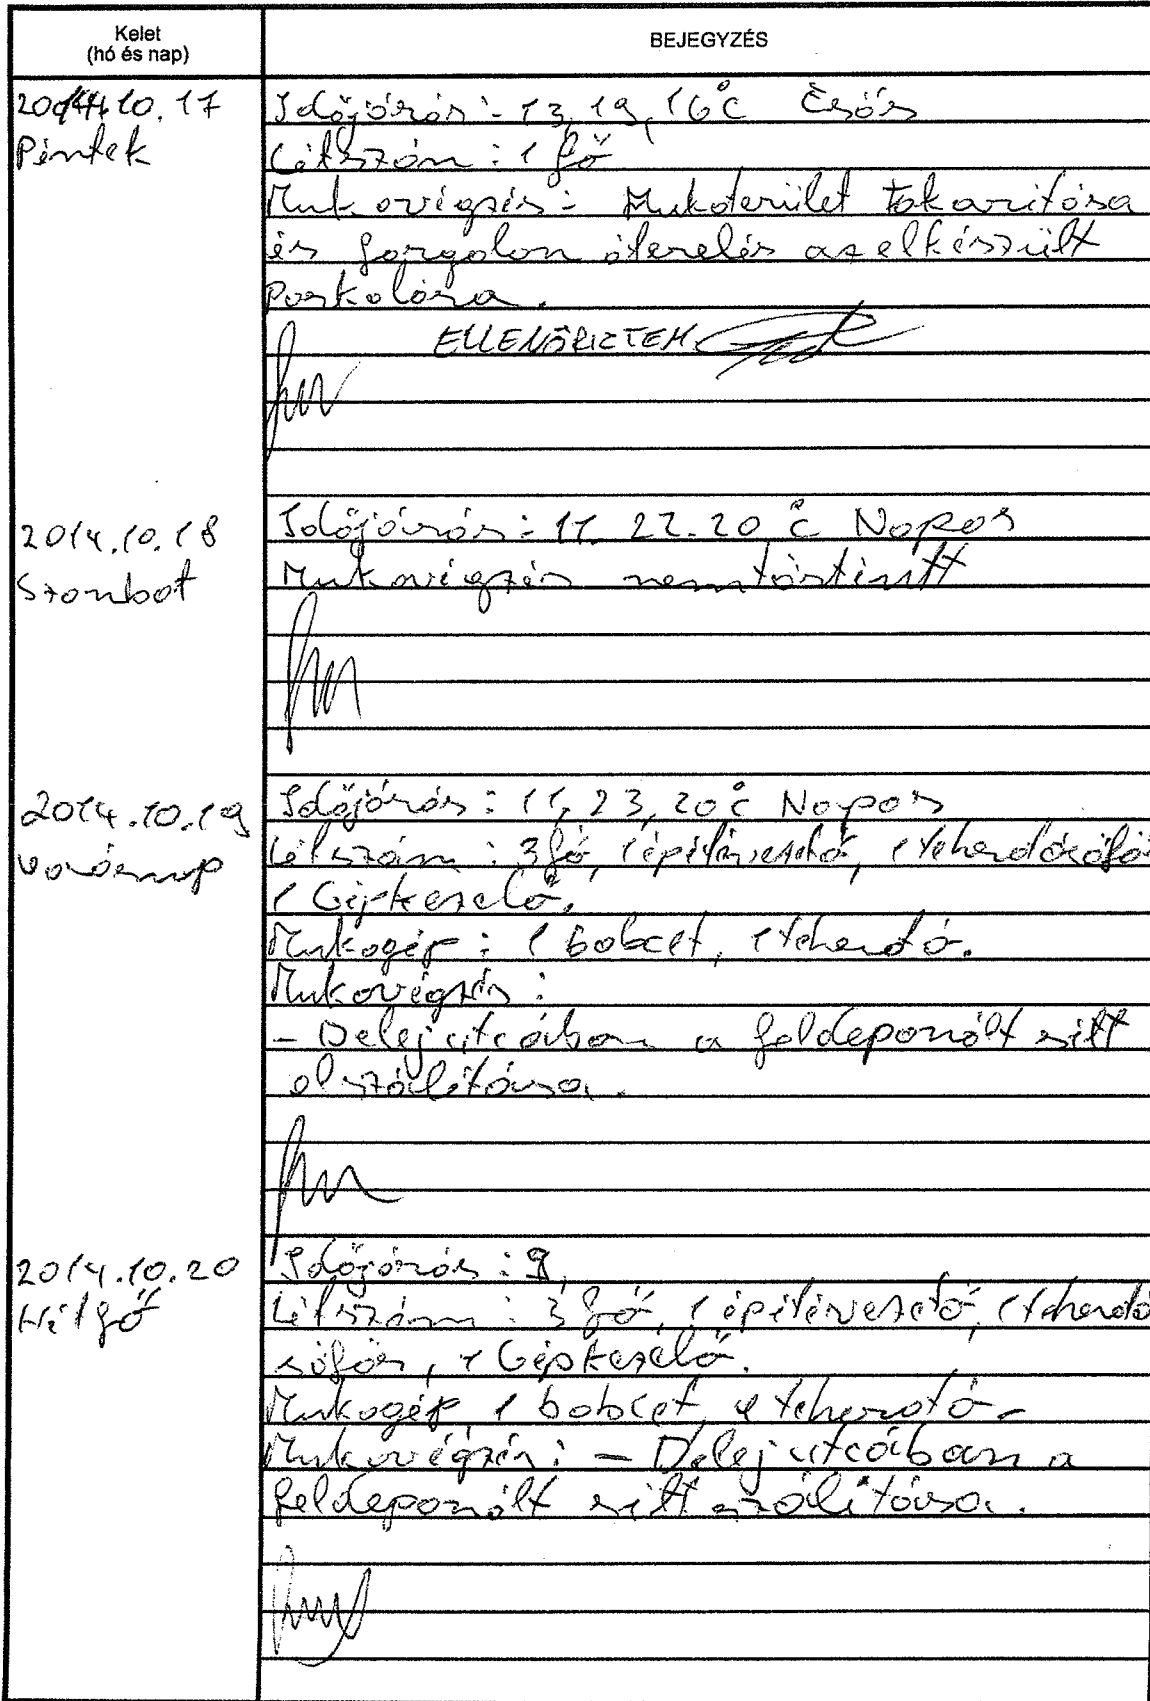 Kelet
(hó és nap)
BEJEGYZÉS
2014.10.17
Péntek
Időjárás: 13, 19, 16°C Esős
Létszám: 1 fő
Munkavégzés: Munkaterület takarítása
és forgalom áterelés az elkészült
parkolóra.
ELLENŐRIZTEM
2014.10.18
Szombat
Időjárás: 11. 22. 20 °C Napos
Munkavégzés nem történt
2014.10.19
vasárnap
Időjárás: 11, 23, 20°C Napos
Létszám: 3 fő, 1 építésvezető, 1 teherautó sofőr
1 Gépkezelő.
Munkagép: 1 bobcat, 1 teherautó.
Munkavégzés:
- Delej utcában a feldeponált sitt
elszállítása.
2014.10.20
Hétfő
Időjárás: 9,
Létszám: 3 fő, 1 építésvezető, 1 teherautó
sofőr, 1 Gépkezelő.
Munkagép 1 bobcat, teherautó-
Munkavégzés: - Delej utcában a
feldeponált sitt szálítása.